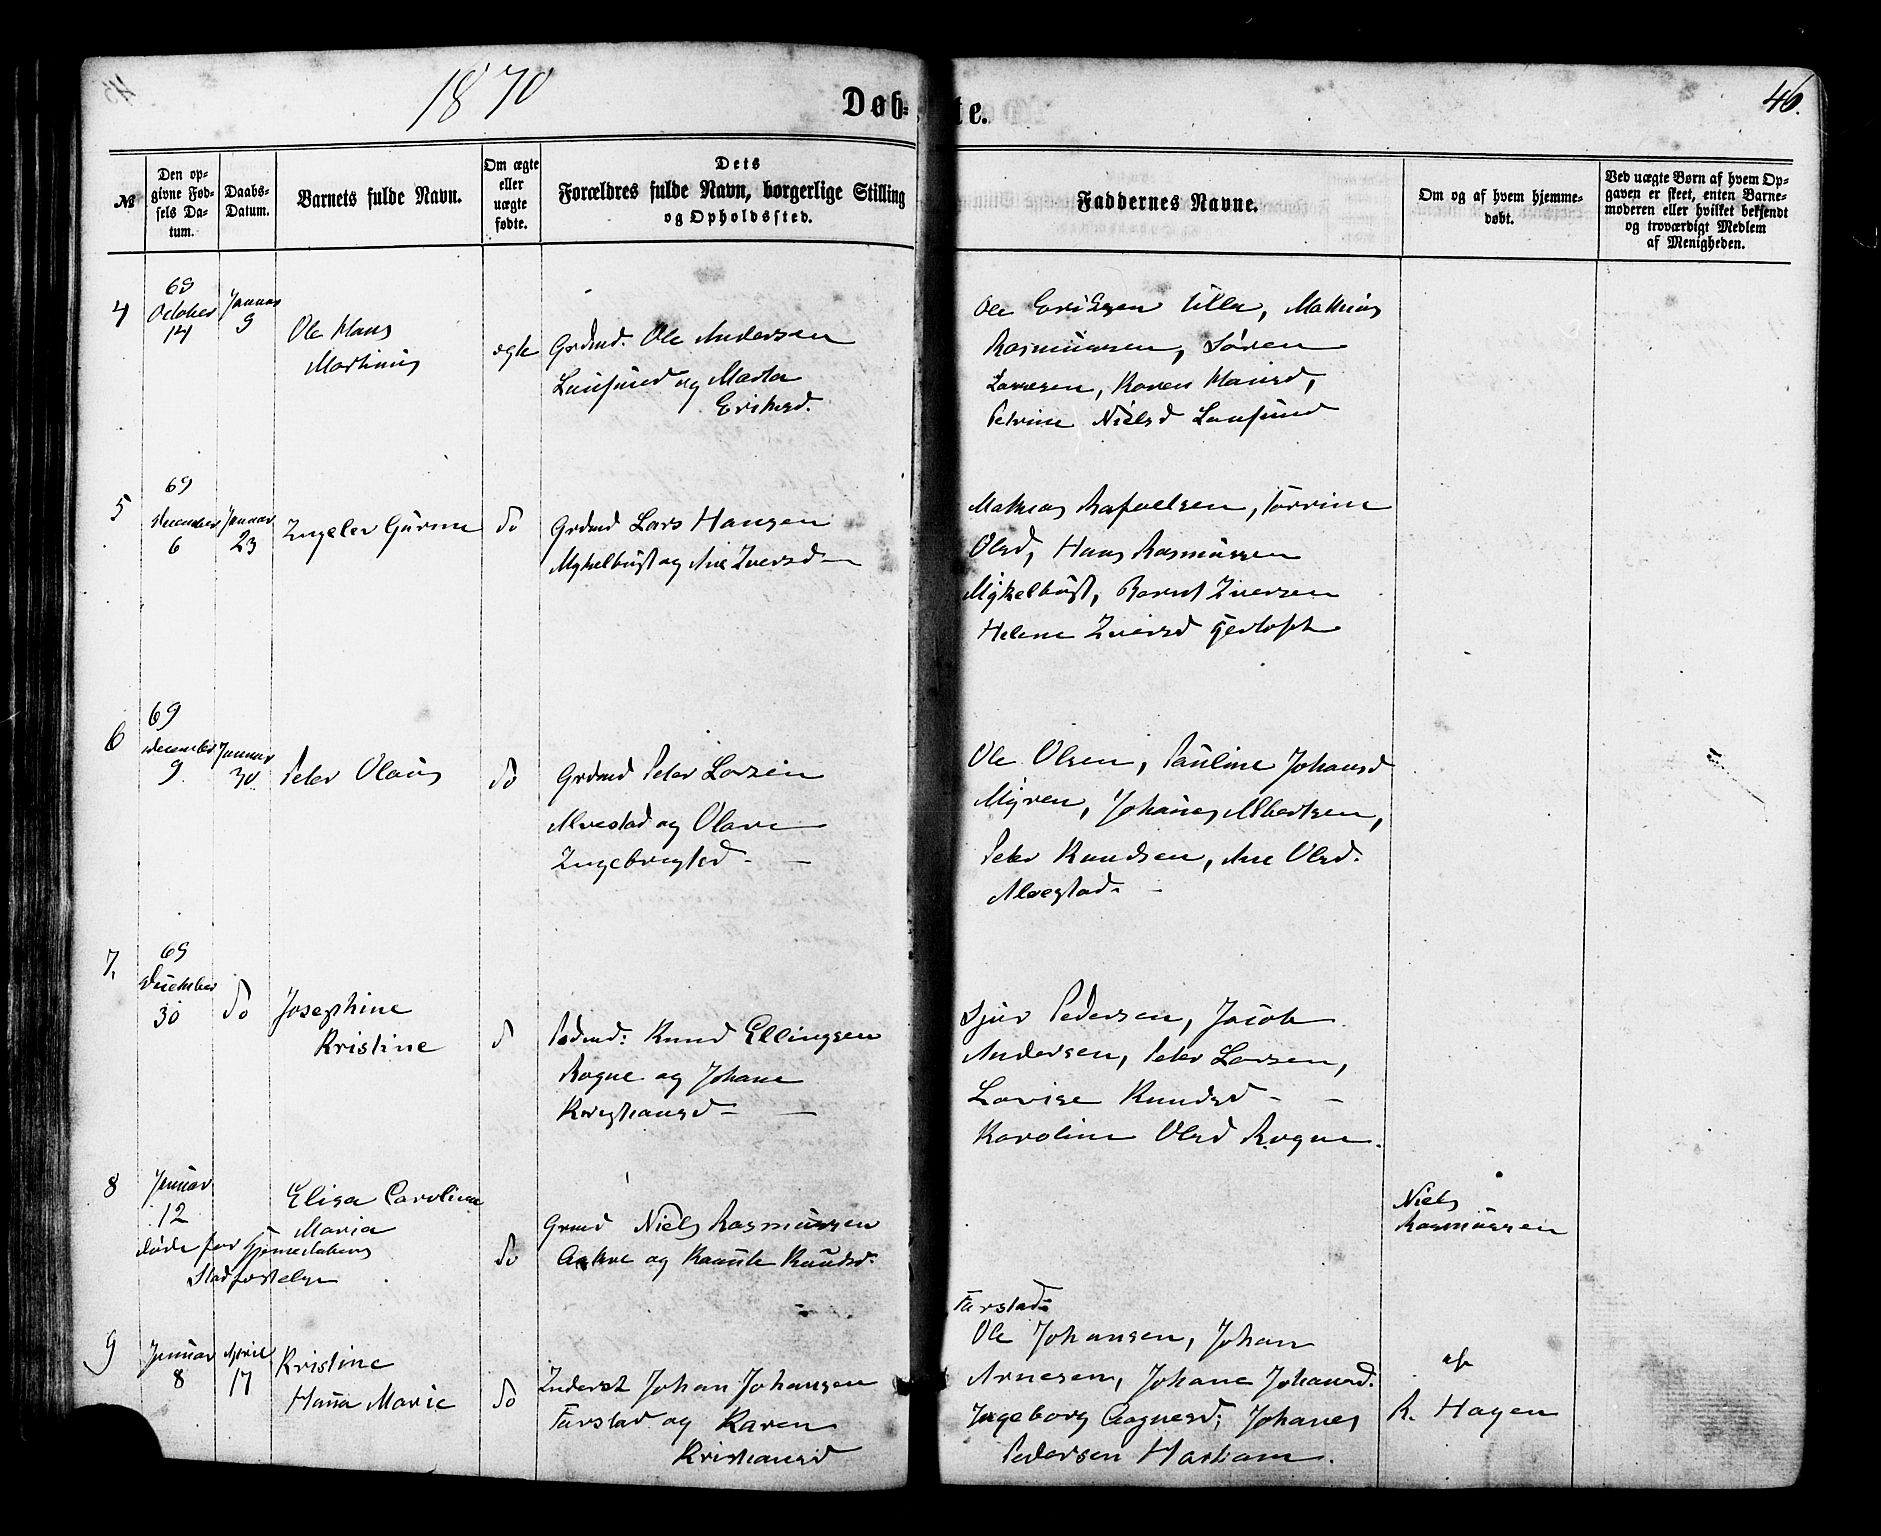 1870
Døb-
te.
46.
№
Den op-
givne Fød-
sels Da-
tum.
Daabs-
Datum.
Barnets fulde Navn.
Om ægte
eller
uægte
fødte.
Dets
Forældres fulde Navn, borgerlige Stilling
og Opholdssted.
Faddernes Navne.
Om og af hvem hjemme-
døbt.
Ved uægte Børn af hvem Op-
gaven er skeet, enten Barne-
moderen eller hvilket bekjendt
og troværdigt Medlem
af Menigheden.
4
69
October
14
Januar
9
Ole Hans
Martinus
ægte
Grdmd. Ole Andersen
og Marta
Eriksd.
Ole Eriksen Ulla, Mathias
Rasmussen, Søren
Larsen, Karen Hansd,
Petrine Nielsd
5
69
December
6
Januar
23
Gurine
do
Grdmd Lars Hansen
Mykelbust og Ane Iversd
Mathias Rafaelsen, Torrine
Olsd, Hans Rasmussen
Mykelbust, Bernt Iversen
Helene Iversd
6
69
December
9
Januar
30
Peter Olaus
do
Grdmd Peter Larsen
Alvestad og Olave
Ingebrigtsd
Ole Olsen, Pauline Johansd
Myren, Johanes Albertsen,
Peter Knudsen, Ane Olsd.
Alvestad.
7.
69
December
30
do
Josephine
Kristine
d
Knud Ellingsen
Rogne og Johane
Kristiansd
Sjur Pedersen, Jacob
Andersen, Peter Larsen,
Lovise Knudsd
Karoline Olsd Rogne.
8
Januar
12
Elisa Carolina
Maria
døde før Hjemmedaabens
Stadfæstelse
do
Grmd Niels Rasmussen
og Knudsd.
Niels
Rasmussen
9
Januar
8
April
17
Kristine
Hana Marie
do
Inderst Johan Johansen
Farstad og Karen
Kristiansd
Farstad:
Ole Johansen, Johan
Arnesen, Johane Johansd.
Ingeborg Aagesd; Johanes
Pedersen Harham.
af
R. Hagen